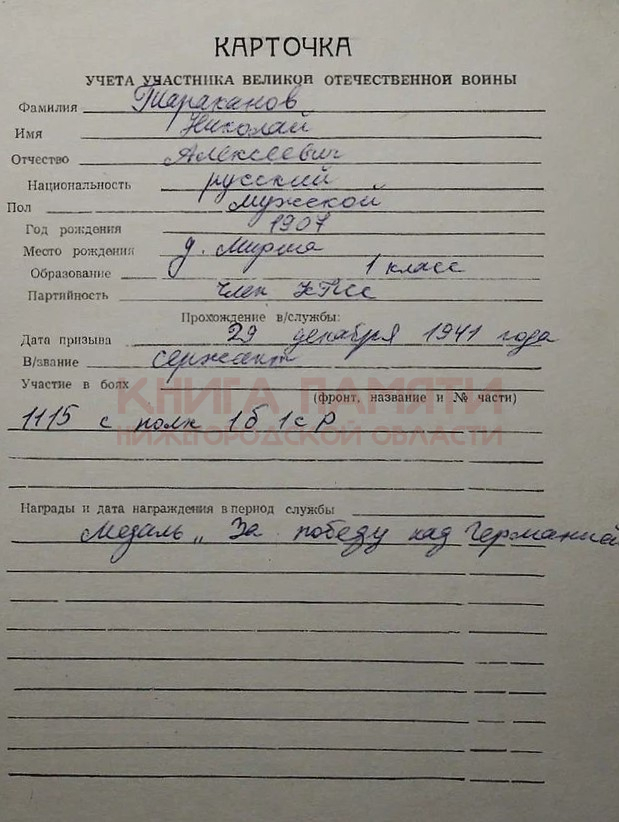 КАРТОЧКА
УЧЕТА УЧАСТНИКА ВЕЛИКОЙ ОТЕЧЕСТВЕННОЙ ВОЙНЫ
Фамилия Тараканов
Имя Николай
Отчество Алексеевич
Национальность русский
Пол мужской
Год рождения 1907
Место рождения д. Мирша
Образование 1 класс
Партийность член КПСС
Прохождение в/службы:
Дата призыва 29 декабря 1941 года
В/звание сержант
Участие в боях
(фронт, название и № части)
КНИГА ПАМЯТИ
НИЖЕГОРОДСКОЙ ОБЛАСТИ
1115 с полк 1б 1с Р
Награды и дата награждения в период службы
Медаль „За победу над Германией